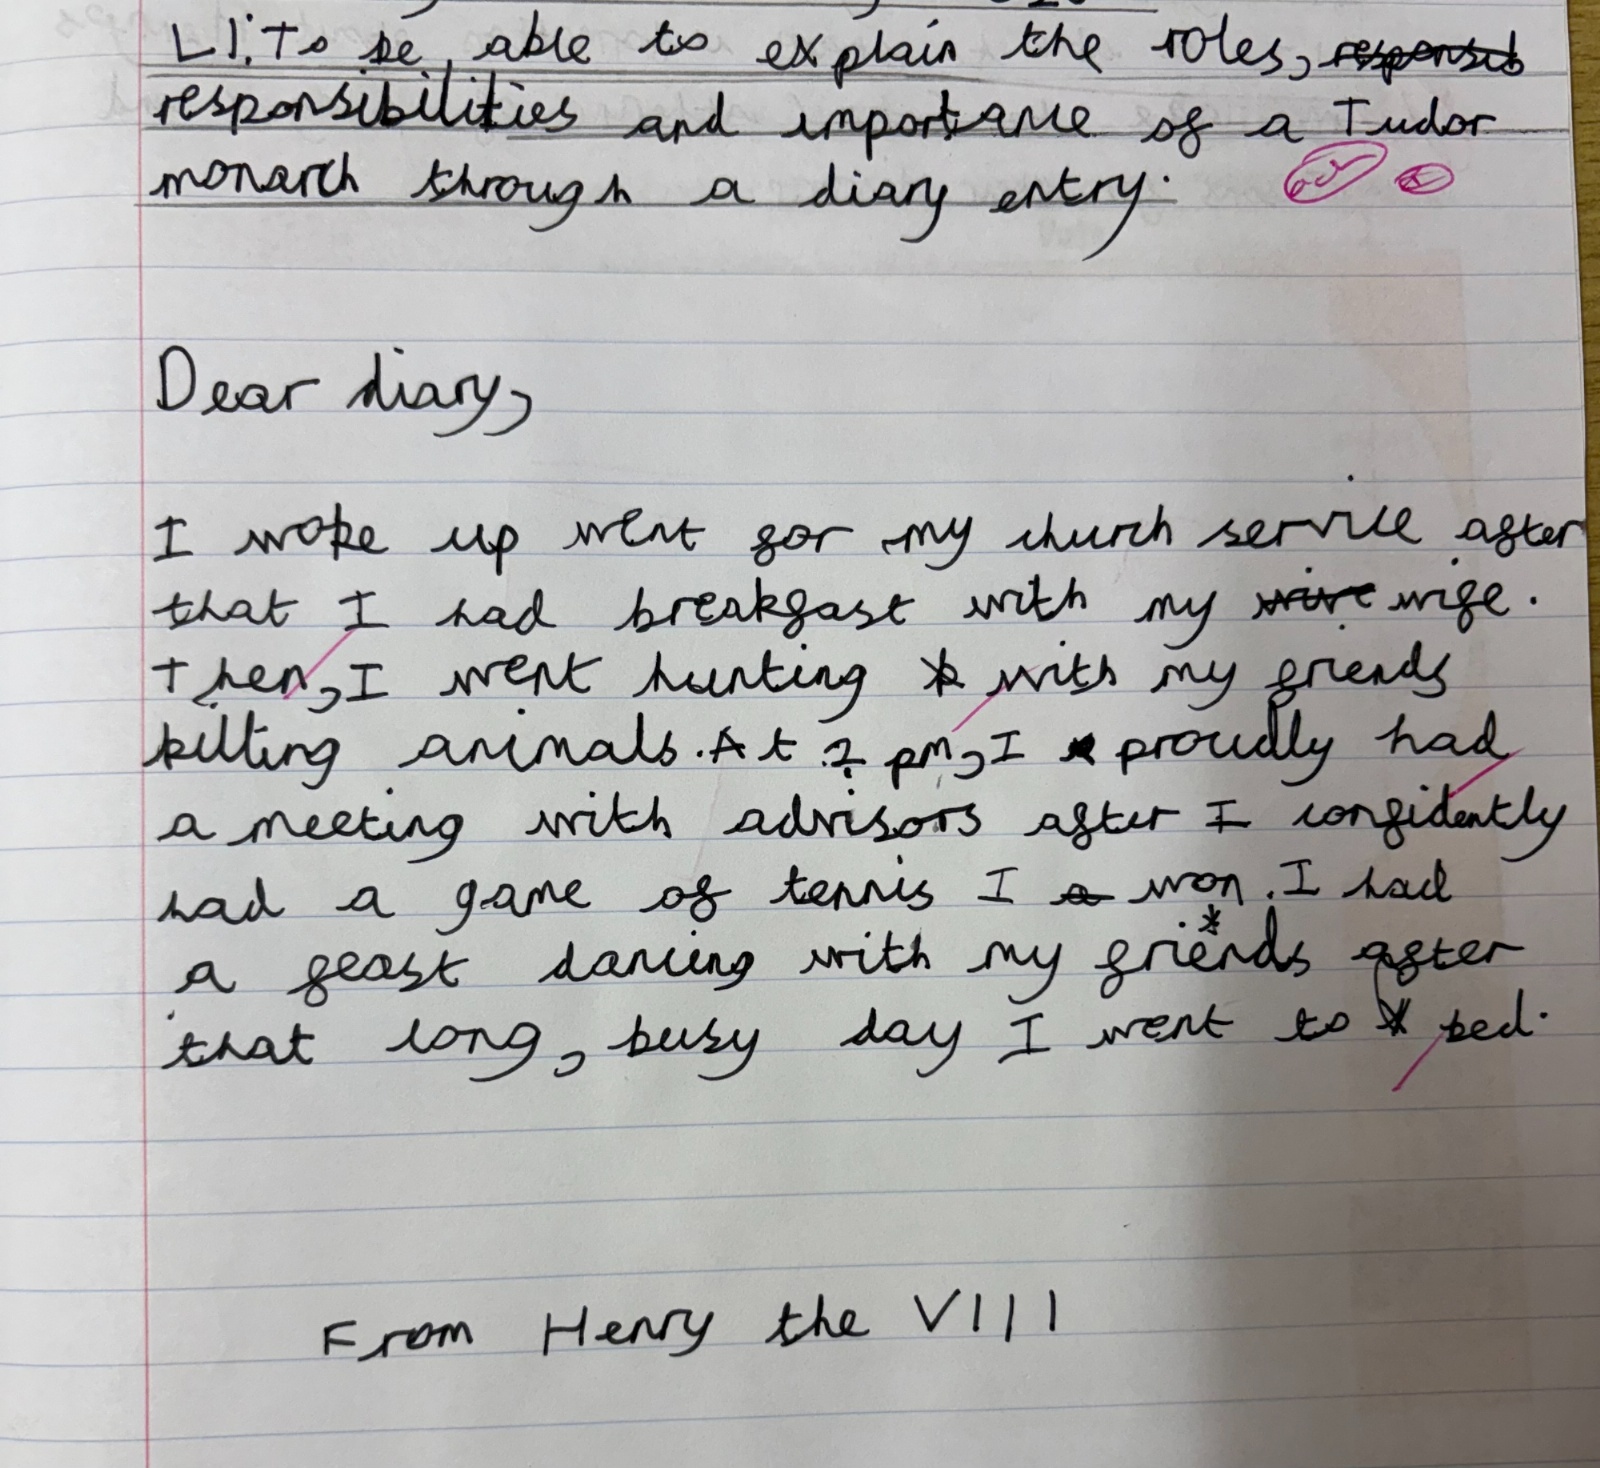 LI: To be able to explain the roles,
responsibilities and importance of a Tudor
monarch through a diary entry.
Dear diary,
I woke up went for my church service after
that I had breakfast with my wife.
Then, I went hunting with my friends
killing animals. At 2 pm, I proudly had
a meeting with advisors after I confidently
had a game of tennis I won. I had
a feast dancing with my friends after
that long, busy day I went to bed.
From Henry the VIII